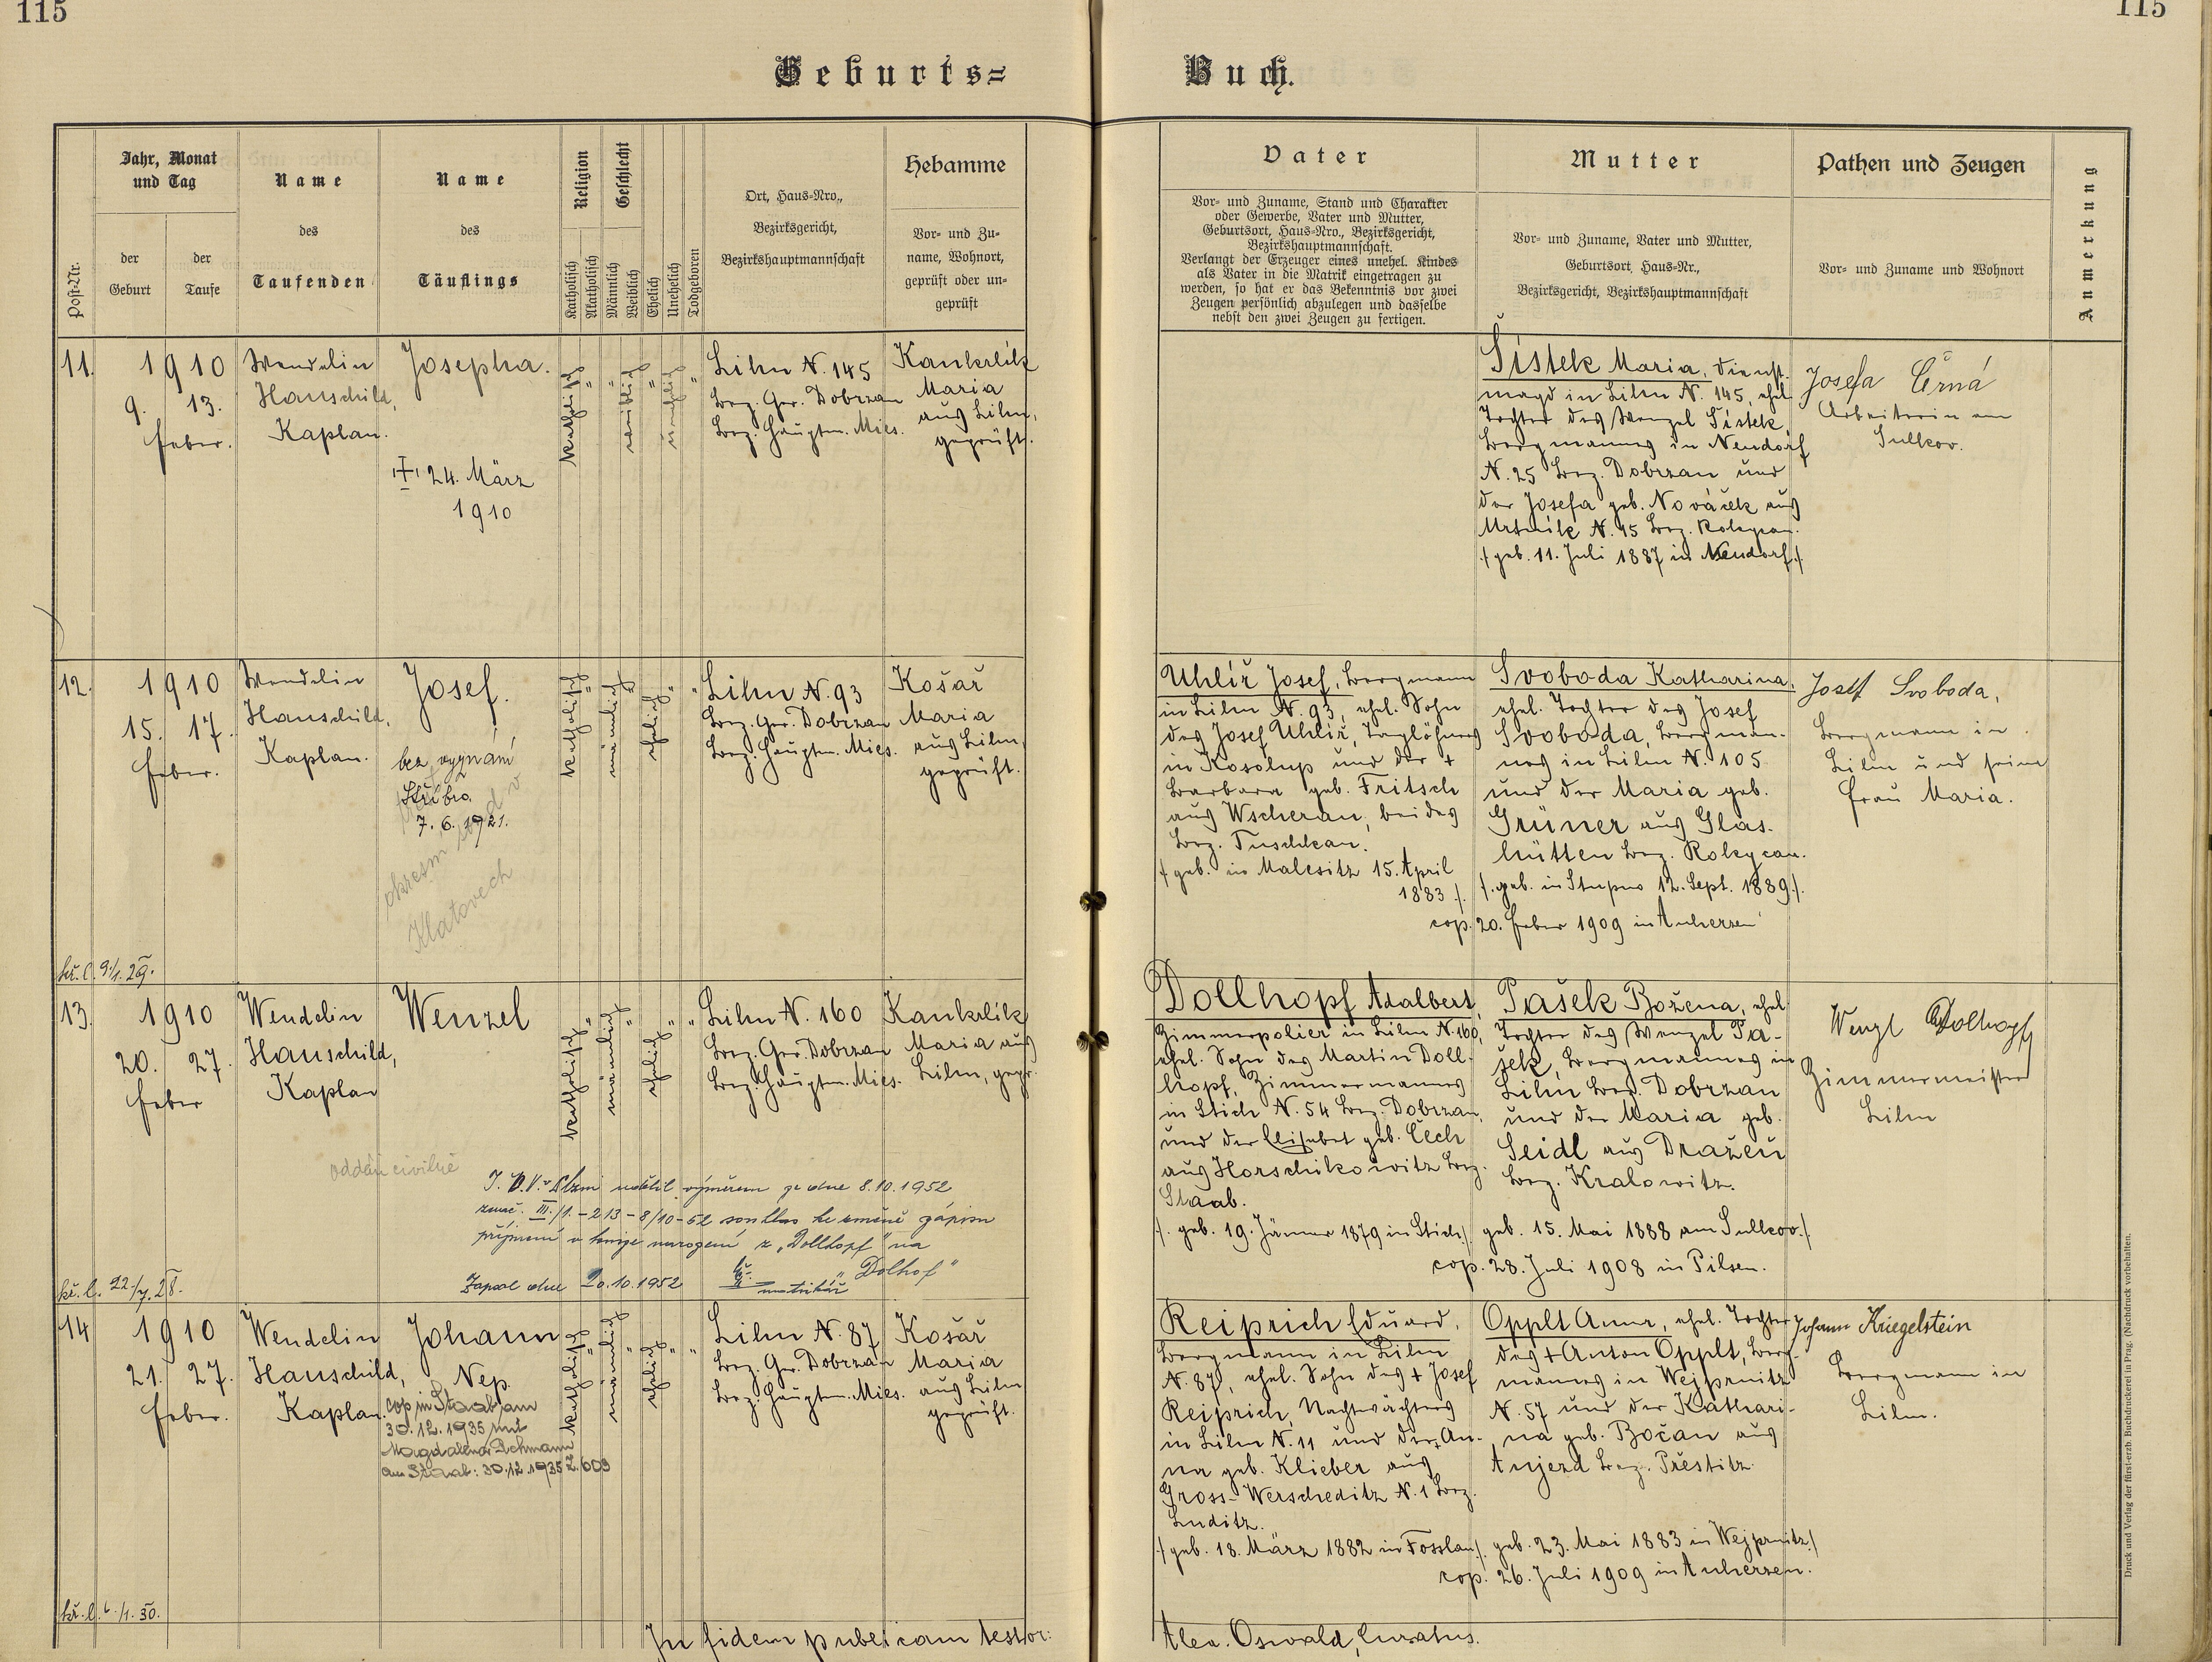 115
115
Geburts=
Buch.
Post-Nr.
Jahr, Monat
und Tag
der
Geburt
der
Taufe
Name
des
Taufenden
Name
des
Täuflings
Religion
Katholisch
Akatholisch
Geschlecht
Männlich
Weiblich
Ehelich
Unehelich
Todgeboren
Ort, Haus=Nro.,
Bezirksgericht,
Bezirkshauptmannschaft
Hebamme
Vor= und Zu=
name, Wohnort,
geprüft oder un=
geprüft
Vater
Vor= und Zuname, Stand und Charakter
oder Gewerbe, Vater und Mutter,
Geburtsort, Haus=Nro., Bezirksgericht,
Bezirkshauptmannschaft.
Verlangt der Erzeuger eines unehel. Kindes
als Vater in die Matrik eingetragen zu
werden, so hat er das Bekenntnis vor zwei
Zeugen persönlich abzulegen und dasselbe
nebst den zwei Zeugen zu fertigen.
Mutter
Vor= und Zuname, Vater und Mutter,
Geburtsort, Haus=Nr.,
Bezirksgericht, Bezirkshauptmannschaft
Pathen und Zeugen
Vor= und Zuname und Wohnort
Anmerkung
11.
1910
9. 13.
Feber.
Wendelin
Hauschild,
Kaplan.
Josepha.
24. März
1910
katholisch
"
weiblich
"
unehelich
"
Lihn N. 145
Bez. Ger. Dobrzan
Bez. Hauptm. Mies.
Kankrlík
Maria
aus Lihn,
geprüft.
Šístek Maria, Dienst-
magd in Lihn N. 145, ehel.
Tochter des Wenzel Šístek,
Bergmannes in Neudorf
N. 25 Bez. Dobrzan und
der Josefa geb. Nováček aus
N. 15 Bez. Rokycan.
./ geb. 11. Juli 1887 in Neudorf ./
Josefa Černá
Arbeiterin am
Sulkov.
12.
1910
15. 17.
Feber.
Wendelin
Hauschild,
Kaplan.
Josef.
bez vyznání
Stříbro
7. 6. 1921.
Klatovech
katholisch
"
männlich
"
ehelich
"
"
Lihn N. 93
Bez. Ger. Dobrzan
Bez. Hauptm. Mies.
Košař
Maria
aus Lihn,
geprüft.
Uhlíř Josef, Bergmann
in Lihn N. 93, ehel. Sohn
des Josef Uhlíř, Taglöhners
in Kosolup und der +
Barbara geb. Fritsch
aus Wscherau, beides
Bez. Tuschkau.
./ geb. in Malesitz 15. April
1883 ./.
Svoboda Katharina,
ehel. Tochter des Josef
Svoboda, Bergman-
nes in Lihn N. 105
und der Maria geb.
Grüner aus Glas-
hütten Bez. Rokycan.
./. geb. in Stupno 12. Sept. 1889 ./.
cop. 20. Feber 1909 in Auherzen
Josef Svoboda,
Bergmann in
Lihn und seine
Frau Maria.
kř. l. 9./1. 29.
13.
1910
20. 27.
Feber
Wendelin
Hauschild,
Kaplan
Wenzel
katholisch
"
männlich
"
ehelich
"
"
Lihn N. 160
Bez. Ger. Dobrzan
Bez. Hauptm. Mies.
Kankrlík
Maria aus
Lihn, gepr.
Dollhopf Adalbert,
Zimmerpolier in Lihn N. 160,
ehel. Sohn des Martin Doll-
hopf, Zimmermannes
in Stich N. 54 Bez. Dobrzan,
und der Elisabet geb. Čech
aus Horschikowitz Bez.
Staab.
./. geb. 19. Jänner 1879 in Stich ./.
Pašek Božena, ehel.
Tochter des Wenzel Pa-
šek, Bergmannes in
Lihn Bez. Dobrzan
und der Maria geb.
Seidl aus Draženč
Bez. Kralowitz.
geb. 15. Mai 1888 am Sulkov. ./
cop. 28. Juli 1908 in Pilsen.
Wenzl Dolhopf
Zimmermeister
Lihn
oddán civilně
J. N. V. v Plzni udělil výměrem ze dne 8.10.1952
znač. III./1. - 213 - 8/10 - 52 souhlas ke změně zápisu
příjmení v knize narození z „Dollhopf" na
„Dolhof"
Zapsal dne 20.10.1952
matrikář
kř. l. 22./7. 28.
14
1910
21. 27.
Feber.
Wendelin
Hauschild,
Kaplan.
Johann
Nep.
cop in Staab am
30.12.1935 mit
Magdalena Dehmann
am Staab: 30.12.1935 Z. 609
katholisch
"
männlich
"
ehelich
"
"
Lihn N. 87
Bez. Ger. Dobrzan
Bez. Hauptm. Mies.
Košař
Maria
aus Lihn
geprüft.
Reiprich Eduard,
Bergmann in Lihn
N. 87, ehel. Sohn des + Josef
Reiprich, Nachtwächters
in Lihn N. 11 und der + An-
na geb. Klieber aus
Gross-Werscheditz N. 1 Bez.
Luditz.
./ geb. 18. März 1882 in Fosslau ./.
Opplt Anna, ehel. Tochter
des + Anton Opplt, Berg-
mannes in Wejprnitz
N. 57 und der Kathari-
na geb. Bočan aus
Aujezd Bez. Přestitz.
geb. 23. Mai 1883 in Wejprnitz ./
cop. 26. Juli 1909 in Auherzen.
Johann Kriegelstein
Bergmann in
Lihn.
kř. l. 6./1. 30.
In fidem publicam testor:
Alex. Oswald, curatus.
Druck und Verlag der fürst-erzb. Buchdruckerei in Prag. (Nachdruck vorbehalten.